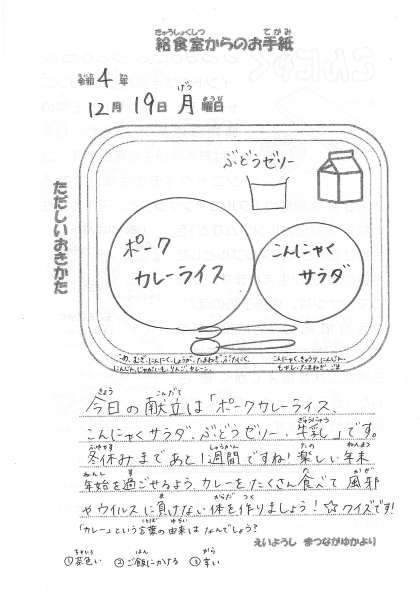 きゅうしょくしつ てがみ
給食室からのお手紙
令和4年
げつ ようび
12月19日月曜日
ただしいおきかた
ぶどうゼリー
ポーク
カレーライス
こんにゃく
サラダ
こめ、むぎ、にんにく、しょうが、たまねぎ、ぶたにく、
にんじん、じゃがいも、りんご、
こんにゃく、きゅうり、にんじん、
もやし、たまねぎ、
きょう こんだて
今日の献立は「ポークカレーライス、
ぎゅうにゅう
こんにゃくサラダ、ぶどうゼリー、牛乳」です。
ふゆやす しゅうかん たの ねんまつ
冬休みまであと1週間ですね!楽しい年末
ねんし す た かぜ
年始を過ごせるよう、カレーをたくさん食べて風邪
ま からだ つく
やウイルスに負けない体を作りましょう!☆クイズです!
ことば ゆらい
「カレー」という言葉の由来はなんでしょう?
えいようし まつながゆかより
ちゃいろ はん から
①茶色い ②ご飯にかける ③辛い